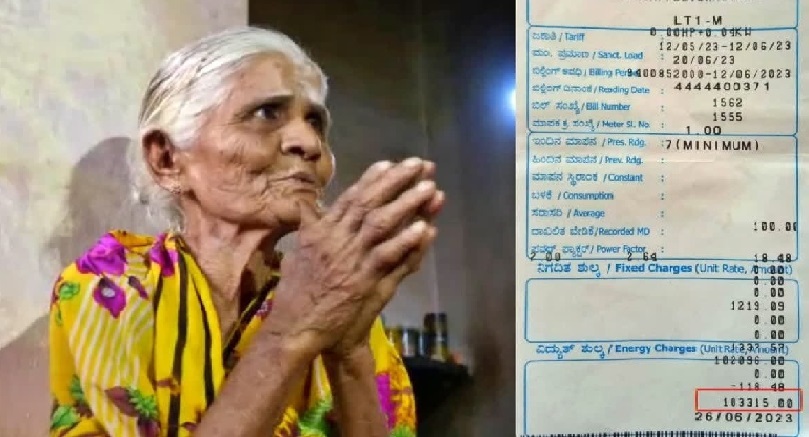 LT1-M
0.00HP+0.04KW
ಜಕಾತಿ / Tariff :
12/05/23-12/06/23
ಮಂ. ಪ್ರಮಾಣ / Sanct. Load :
20/06/23
ಬಿಲ್ಲಿಂಗ್ ಅವಧಿ / Billing Period
9400852008-12/06/2023
/ Reading Date :
4444400371
ಬಿಲ್ ಸಂಖ್ಯೆ / Bill Number :
1562
ಮಾಪಕ ಕ್ರ. ಸಂಖ್ಯೆ / Meter Sl. No. :
1555
1.00
ಇಂದಿನ ಮಾಪನ / Pres. Rdg. :
7(MINIMUM)
ಹಿಂದಿನ ಮಾಪನ / Prev. Rdg. :
ಮಾಪನ ಸ್ಥಿರಾಂಕ / Constant :
ಬಳಕೆ / Consumption :
ಸರಾಸರಿ / Average :
100.00
ದಾಖಲಿತ ಬೇಡಿಕೆ/Recorded MD :
ಪವರ್ ಫ್ಯಾಕ್ಟರ್ / Power Factor :
2.64 18.48
ನಿಗದಿತ ಶುಲ್ಕ / Fixed Charges (Unit Rate, Amount)
0.00
0.00
1219.09
0.00
0.00
ವಿದ್ಯುತ್ ಶುಲ್ಕ / Energy Charges (Unit Rate, Amount)
0.00
-118.48
103315.00
26/06/2023